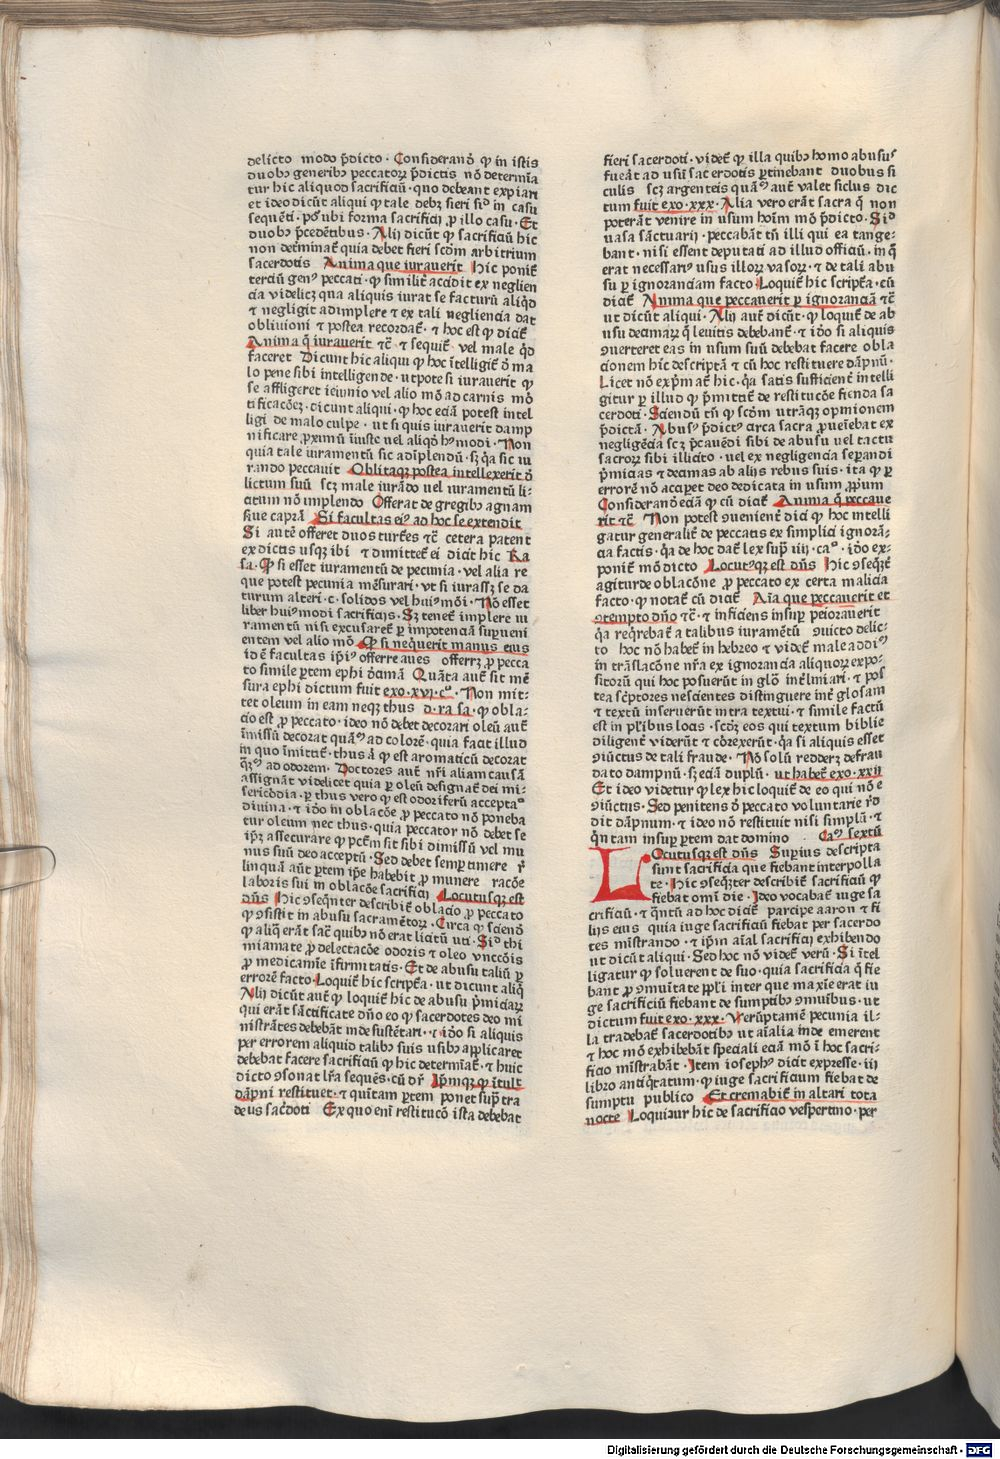 delicto modo p̄dicto · Considerandū ꝙ in istis
duobꝰ generibꝰ peccatoꝝ p̄dictis nō determīa
tur hic aliquod sacrificiū · quo debeant expiari
et ideo dicūt aliqui ꝙ tale debꝫ fieri sīd in casu
sequēti · ubi forma sacrificij ꝓ illo casu · Et
duobꝰ p̄cedētibus · Alij dicūt ꝙ sacrificiū hic
non determinat̄ quia debet fieri scdm arbitrium
sacerdotis Anima que iurauerit Hic ponit̄
terciū genꝰ peccati · ꝙ similit̄ accidit ex neglien
cia videlicꝫ qua aliquis iurat se facturū aliqd̄
et negligit adimplere ⁊ ex tali negliencia dat
obliuioni ⁊ postea recordat̄ · ⁊ hoc est ꝙ dicit̄
Anima q̄ iurauerit ⁊c̄ · ⁊ sequit̄ vel male qd̄
faceret Dicunt hic aliqui ꝙ hoc ītelligit̄ ō ma
lo pene sibi intelligende · utpote si iurauerit ꝙ
se affligeret ieiunio vel alio mō ad carnis mō
tificacōeꝫ · dicunt aliqui · ꝙ hoc eciā potest intel
ligi de malo culpe · ut si quis iurauerit damp
nificare ꝓximū iniuste vel aliqō hꝰmodi · Non
quia tale iuramentū sic adīplendū · sꝫ q̄a sic iu
rando peccauit Oblitaqꝫ postea intellexerit ō
lictum suū scꝫ male iurādo uel iuramentū li-
citum nō implendo Offerat de gregibꝰ agnam
siue caprā Si facultas eiꝰ ad hoc se extendit
Si autē offeret duos turtēs ⁊c̄ cetera patent
ex dictis usqꝫ ibi ⁊ dimittet̄ ei dicit hic Ra
sa · Ꝙ si esset iuramentū de pecunia · vel alia re
que potest pecunia mēsurari · vt si iurassꝫ se da
turum alteri · c · solidos vel huiꝰmōi · Nō esset
liber huiꝰmodi sacrificijs · Sꝫ tenet̄ implere iu
ramentū nisi excusaret̄ ꝑ impotenciā suꝑueni
entem vel alio mō Ꝙ si neq̄uerit manus eius
id ē facultas ip̄iꝰ offerre aues offerrꝫ ꝓ pecca
to simile ꝑtem ephi ōcimā Quāta aut̄ sit mē
sura ephi dictum fuit exo · xvi · cº · Non mit-
tet oleum in eam neqꝫ thus d · ra sa · ꝙ obla-
cio est ꝓ peccato · ideo nō debet decorari oleū aut̄
īmissū decorat quāꝰ ad colorē · quia facit illud
in quo īmittit̄ · thus ā ꝙ est aromaticū decorat
ad odorem · Doctores aut̄ nr̄i aliam causā
assignāt videlicet quia ꝑ oleū designat̄ dei mi-
sericōdia · ꝑ thus vero ꝙ est odoriferū accepta
diuina · ⁊ idō in oblacōe ꝓ peccato nō poneba
tur oleum nec thus · quia peccator nō debet se
ip̄ꝫ assecurare ꝙ pctm̄ sit sibi dimissū vel mu
nus suū deo acceptū · Sed debet semꝑ timere r̄
linquā aūt ꝑtem ip̄e habebit ꝓ munere racōe
laboris sui in oblacōe sacrificij Locutusqꝫ est
dn̄s Hic ꝯseqn̄ter describit̄ oblacio ꝓ peccato
ꝙ ꝯsistit in abusu sacramētoꝝ · Circa ꝙ sciendō
ꝙ aliq̄ erāt sac̄ quibꝰ nō erat licitū uti · Sid thi
miamate ꝓ delectacōe odoris ⁊ oleo vnccōis
ꝓ medicamīe īfirmitatis · Et de abusu taliū ꝑ
errorē facto · Loquit̄ hic scriptēa · ut dicunt aliq̄
Alij dicūt aut̄ ꝙ loquit̄ hic de abusu p̄miciaꝝ
qui erāt sāctificate dn̄o eo ꝙ sacerdotes deo mi
nistrātes debebāt inde sustētari · ⁊ idō si aliquis
per errorem aliquid talibꝰ suis usibꝰ applicaret
debebat facere sacrificiū ꝙ hic determīat̄ · ⁊ huic
dicto ꝯsonat lr̄a sequēs · cū dr̄ Ip̄mqꝫ ꝙ ītult
dāpni restituet · ⁊ quītam ꝑtem ponet supͣ tra
deus sac̄doti Ex quo enī restitucō ista debebat
fieri sacerdoti · videt̄ ꝙ illa quibꝰ homo abusuˢ
fueāt ad usū sacerdotis ꝑtinebant duobus si
culis scꝫ argenteis quāꝰ aut̄ valet siclus dic
tum fuit exo · xxx · Alia vero erāt sacra q̄ non
poterāt venire in usum hoīm mō p̄dicto · Sid
uasa sāctuarij · peccabāt tn̄ illi qui ea tange-
bant · nisi essent deputati ad illud officiū · in q̄
erat necessariꝰ usus illoꝝ vasoꝝ · ⁊ de tali abu
su ꝑ ignoranciam facto Loquit̄ hic scriptēa · cū
dicit̄ Anima que peccauerit ꝑ ignoranciā ⁊c̄
ut dicūt aliqui · Alij aut̄ dicūt · ꝙ loquit̄ de ab
usu decimaꝝ q̄ leuitis debebant̄ · ⁊ idō si aliquis
ꝯuerteret eas in usum suū debebat facere obla
cionem hic descriptā ⁊ cū hoc restituere dāpnū ·
Licet nō exp̄mat̄ hic · q̄a satis sufficient̄ intelli
gitur ꝑ illud ꝙ p̄mittit̄ de restitucōe fienda sa
cerdoti · Sciendū tn̄ ꝙ scdm utrāqꝫ opinionem
p̄dictā · Abusꝰ p̄dictꝰ circa sacra ꝓueīebat ex
negligēcia scꝫ p̄cauēdi sibi de abusu vel tactu
sacroꝝ sibi illicito · vel ex negligencia seꝑandi
p̄micias ⁊ decimas ab alijs rebus suis · ita ꝙ ꝑ
errorē nō accipet deo dedicata in usum ꝓp̄um
Considerandū eciā ꝙ cū dicit̄ Anima q̄ peccaue
rit ⁊c̄ Non potest ꝯuenient̄ dici ꝙ hoc intelli
gatur generalit̄ de peccatis ex simplici ignorā-
cia factis · q̄a de hoc dat̄ lex supͣ iiij · caº · idō ex-
ponit̄ mō dicto Locutꝰqꝫ est dn̄s Hic ꝯseqn̄t̄
agitur de oblacōne ꝓ peccato ex certa malicia
facto · ꝙ notat̄ cū dicit̄ Aīa que peccauerit et
ꝯtempto dn̄o ⁊c̄ · ⁊ inficiens insuꝑ peiorauerit
q̄a req̄rebat̄ a talibus iuramētū ꝯuicto delic-
to hoc nō habet̄ in hebreo ⁊ videt̄ male addiꝰ
in trāslacōne nr̄a ex ignorancia aliquoꝝ expo-
sitorū qui hoc posuerūt in glō int̄lmiari · ⁊ pos
tea scp̄tores nescientes distinguere int̄ glosam
⁊ textū inseruerūt intra textui · ⁊ simile factū
est in pl̄ribus locis · scdm eos qui textum biblie
diligent̄ viderūt ⁊ cōrexerūt · q̄a si aliquis esset
ꝯuictus de tali fraude · Nō solū redderꝫ defrau
dato dampnū · sꝫ eciā duplū · ut habet̄ exo · xxij
Et ideo videtur ꝙ lex hic loquit̄ de eo qui nō e
ꝯuictus · Sed penitens ō peccato voluntarie r̄d
dit dāpnum · ⁊ ideo nō restituit nisi simplū · ⁊
q̄ntam insuꝑ ꝑtem dat domino · Caᵐ sextū
Locutusqꝫ est dn̄s Suꝑius descripta
sunt sacrificia que fiebant interpolla
te · Hic ꝯseqn̄ter describit̄ sacrificiū ꝙ
fiebat omī die · Ideo vocabat̄ iuge sa
crificiū · ⁊ qn̄tū ad hoc dicit̄ parcipe aaron ⁊ fi
lijs eius quia iuge sacrificiū fiebat per sacerdo
tes mīstrando · ⁊ ip̄m aīal sacrificij exhibendo
ut dicūt aliqui · Sed hoc nō videt̄ verū · Si ītel
ligatur ꝙ soluerent de suo · quia sacrificia q̄ fie
bant ꝓ ꝯmuītate pp̄li inter que maxīe erat iu
ge sacrificiū fiebant de sumptibꝰ ꝯmuībus · ut
dictum fuit exo · xxx · Verūptamē pecunia il-
la tradebat̄ sacerdotibꝰ ut aīalia inde emerent
⁊ hoc mō exhibebāt speciali eciā mō ī hoc sacri-
ficio mīstrabāt · Item iosephꝰ dicit expresse · iij
libro antiq̄tatum · ꝙ iuge sacrificium fiebat de
sumptu publico Et cremabit̄ in altari tota
nocte Loquiꞇur hic de sacrificio vespertino · per
Digitalisierung gefördert durch die Deutsche Forschungsgemeinschaft - DFG